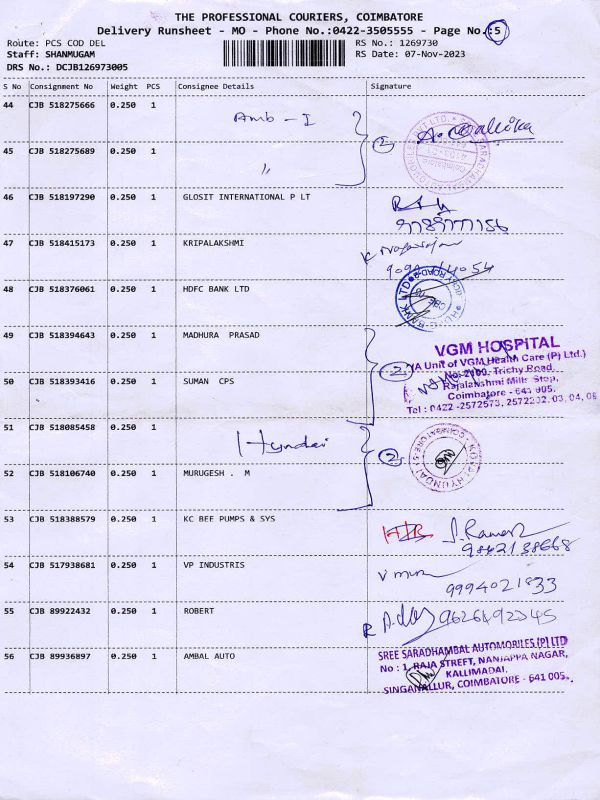 THE PROFESSIONAL COURIERS, COIMBATORE
Delivery Runsheet - MO - Phone No.:0422-3505555 - Page No.:5
Route: PCS COD DEL
RS No.: 1269730
Staff: SHANMUGAM
RS Date: 07-Nov-2023
DRS No.: DCJB126973005
S No Consignment No Weight PCS Consignee Details Signature
44 CJB 518275666 0.250 1 Amb - I
2
45 CJB 518275689 0.250 1 "
46 CJB 518197290 0.250 1 GLOSIT INTERNATIONAL P LT
47 CJB 518415173 0.250 1 KRIPALAKSHMI
48 CJB 518376061 0.250 1 HDFC BANK LTD
49 CJB 518394643 0.250 1 MADHURA PRASAD
2
VGM HOSPITAL
(A Unit of VGM Health Care (P) Ltd.)
No: 2100, Trichy Road,
Rajalakshmi Mills Stop,
Coimbatore - 641 005.
Tel : 0422 -2572573, 2572232, 03, 04, 08
50 CJB 518393416 0.250 1 SUMAN CPS
51 CJB 518085458 0.250 1 Hyundai
2
52 CJB 518106740 0.250 1 MURUGESH . M
53 CJB 518388579 0.250 1 KC BEE PUMPS & SYS
J. Ramesh
9842138668
54 CJB 517938681 0.250 1 VP INDUSTRIS
9994021833
55 CJB 89922432 0.250 1 ROBERT
9626492345
56 CJB 89936897 0.250 1 AMBAL AUTO
SREE SARADHAMBAL AUTOMOBILES (P) LTD
No : 1, RAJA STREET, NANJAPPA NAGAR,
KALLIMADAI,
SINGANALLUR, COIMBATORE - 641 005.